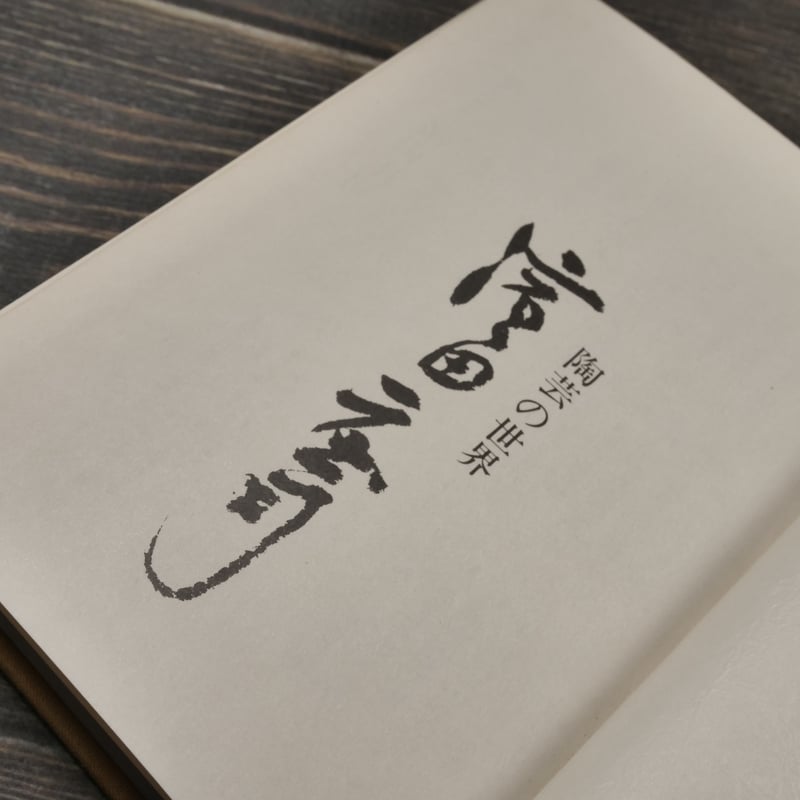 陶芸の世界
濱田庄司